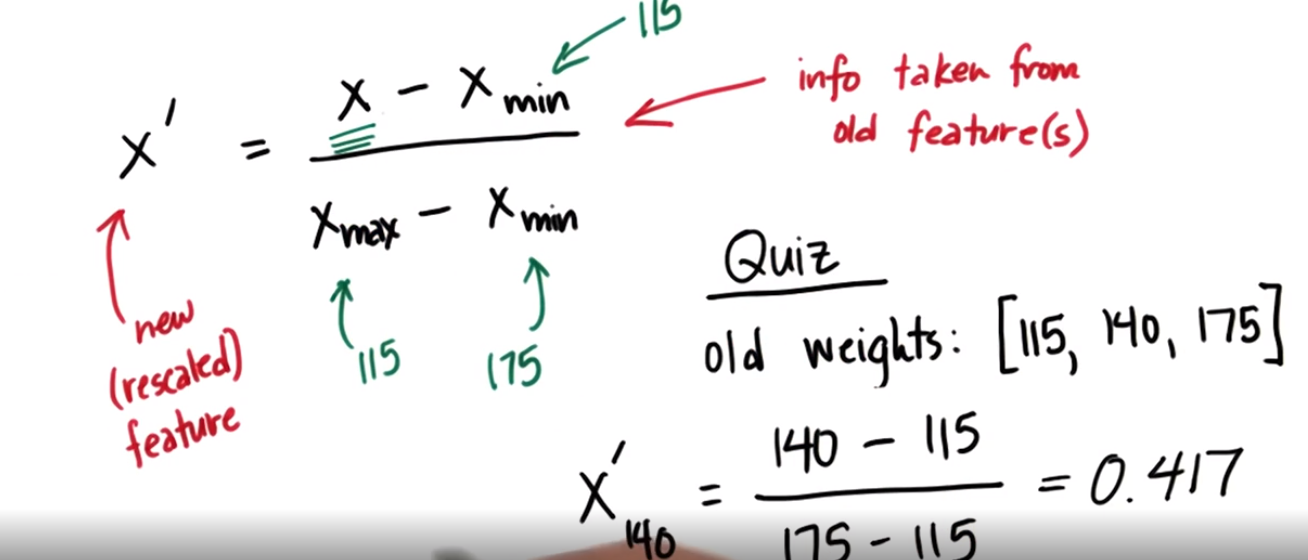 115
x' = (x - x min) / (x max - x min)
info taken from
old feature(s)
new
(rescaled)
feature
115
175
Quiz
old weights: [115, 140, 175]
x'140 = (140 - 115) / (175 - 115) = 0.417